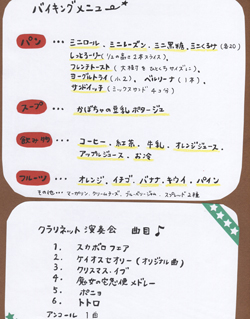 バイキングメニュー
パン … ミニロール、ミニレーズン、ミニ黒糖、ミニくるみ(各20)
しっとろーリー
フレンチトースト(大焼きをひとくちサイズに)
ヨーグルトライ(小2)、ベルリーナ(1本)
サンドイッチ(ミックスサンド4つ分)
スープ … かぼちゃの豆乳ポタージュ
飲み物 … コーヒー、紅茶、牛乳、オレンジジュース
アップルジュース、お冷
フルーツ … オレンジ、イチゴ、バナナ、キウイ、パイン
その他… マーガリン、クリームチーズ、ブルーベリージャム
クラリネット演奏会 曲目♪
1. スカボロフェア
2. ケイオスセオリー(オリジナル曲)
3. クリスマス・イブ
4. 魔女の宅急便メドレー
5. ポニョ
6. トトロ
アンコール 1曲